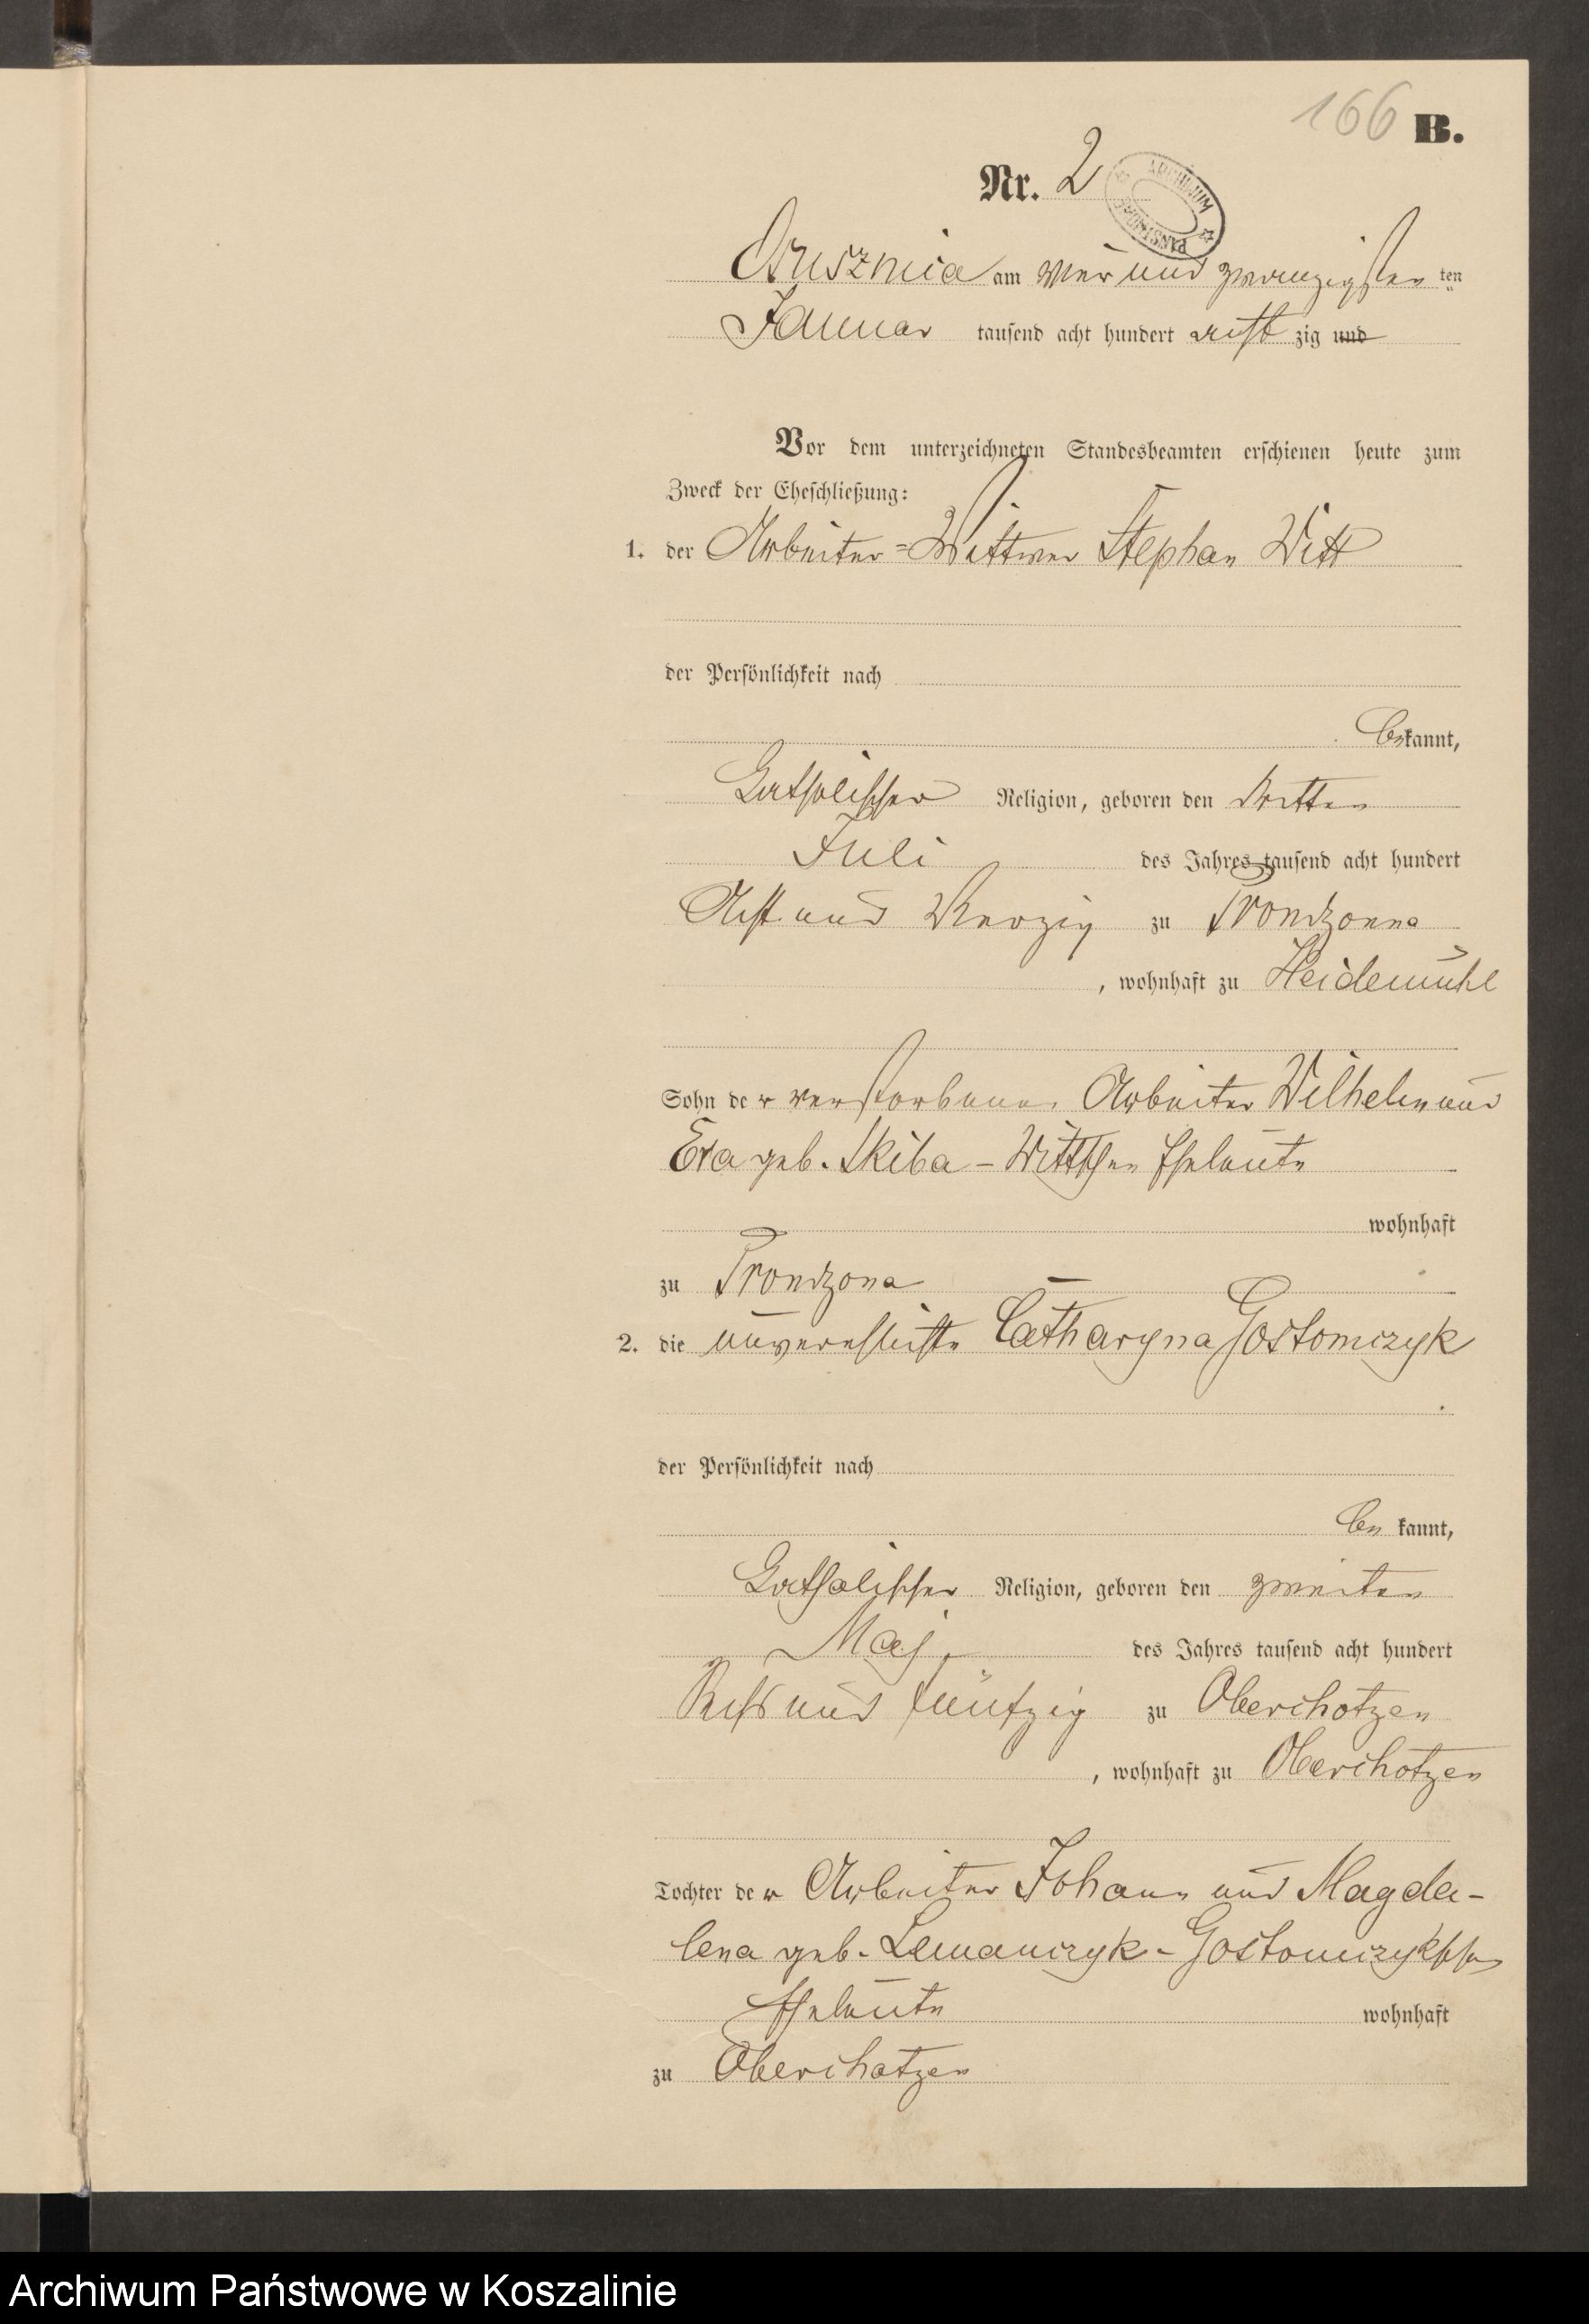 166 B.
Nr. 2
ARCHIWUM PAŃSTWOWE
Osusznica am vier und zwanzigsten ten
Januar tausend acht hundert acht zig und
Vor dem unterzeichneten Standesbeamten erschienen heute zum
Zweck der Eheschließung:
1. der Arbeiter=Wittwer Stephan Witt
der Persönlichkeit nach
bekannt,
Katholischer Religion, geboren den dritten
Juli des Jahres tausend acht hundert
Acht und Vierzig zu Prondzonna
, wohnhaft zu Heidemühl
Sohn der verstorbenen Arbeiter Wilhelm und
Eva geb. Skiba - Wittschen Eheleute
wohnhaft
zu Prondzona
2. die unverehlichte Catharyna Gostomczyk
der Persönlichkeit nach
be kannt,
Katholischer Religion, geboren den zweiten
Maj des Jahres tausend acht hundert
und fünfzig zu Oberchotzen
, wohnhaft zu Oberchotzen
Tochter der Arbeiter Johann und Magda-
lena geb. Lemanczyk - Gostomczykschen
Eheleute wohnhaft
zu Oberchotzen
Archiwum Państwowe w Koszalinie